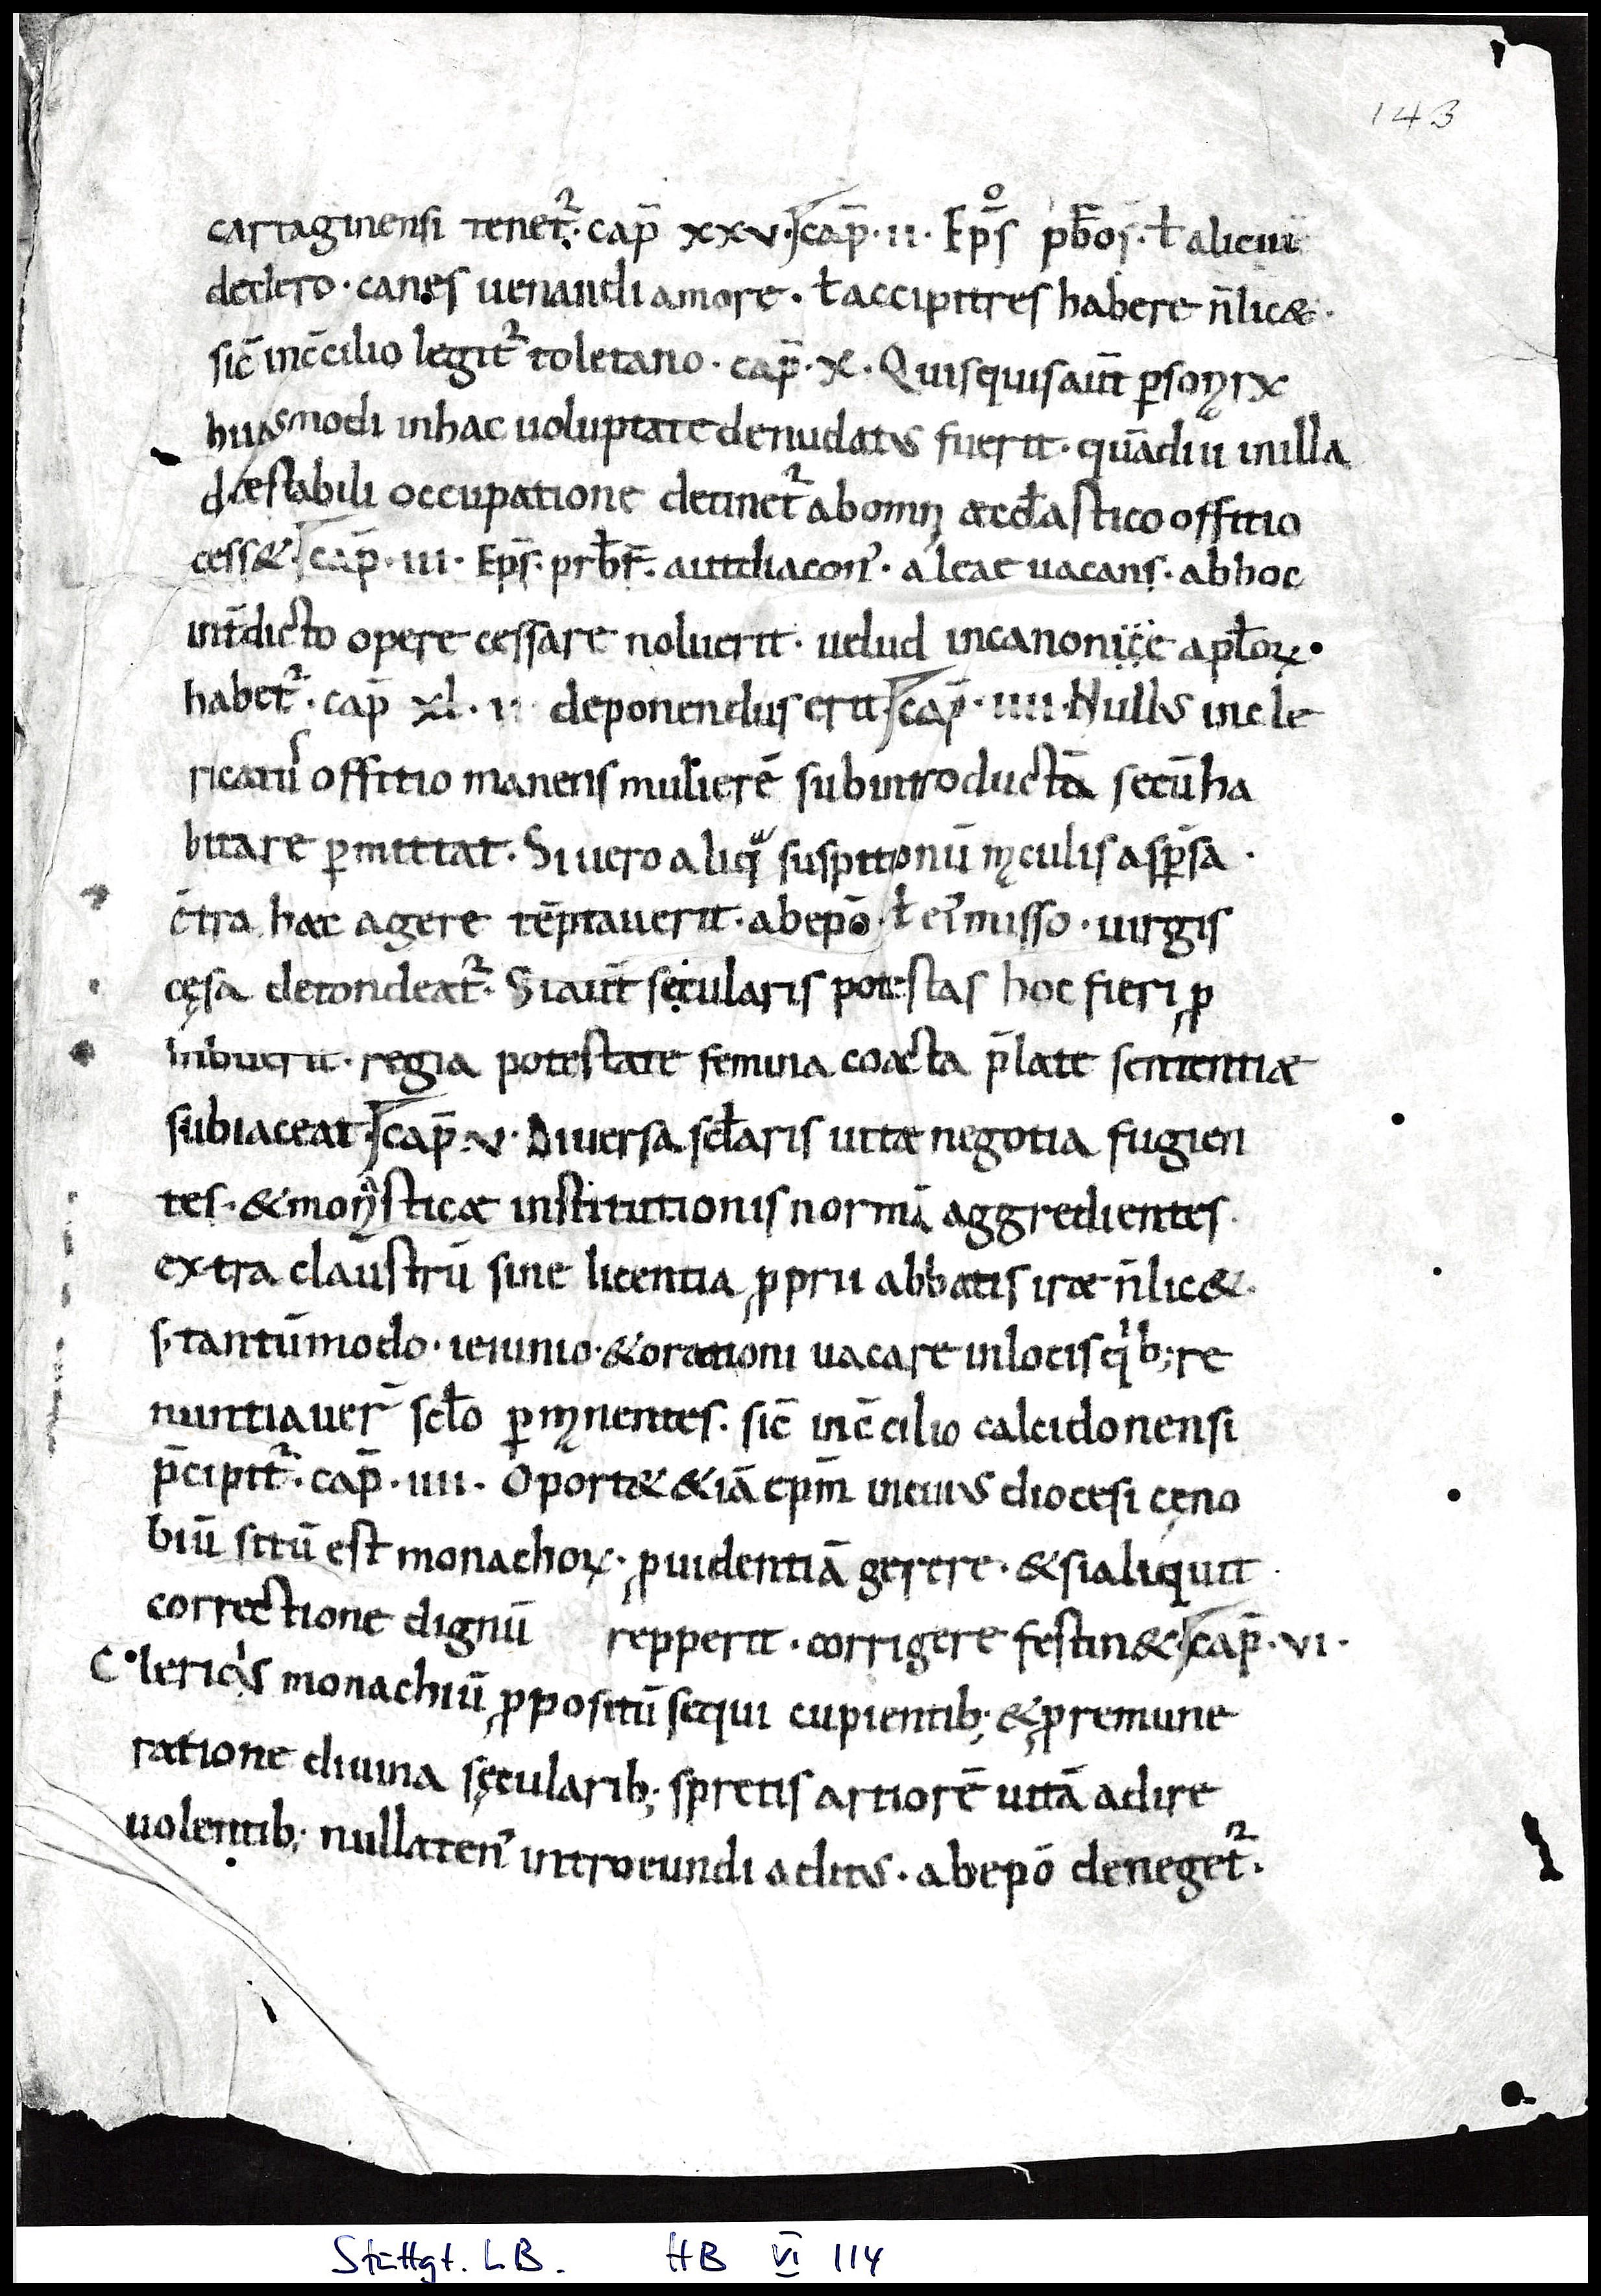 143
cartaginensi tenet̄ᷣ. cap̄ xxv. cap̄. ii. Ep̄s p̄b̄os. ł alicui
declero. canes uenandi amore. ł accipitres habere n̄lic&.
sic̄ inc̄cilio legitᷣ toletano. cap̄. x. Quisquis aut̄ ꝑsonarum
huiusmodi inhac uoluptate denudatus fuerit. quādiu inilla
dætestabili occupatione detinetᷣ abomni æccłastico offitio
cess&. cap̄. iii. Ep̄s. prb̄t̄. aut diacon᾽. aleae uacans. abhoc
int̄dicto opere cessare noluerit. uelud incanonice apłoꝝ.
habetᷣ. cap̄ xl. ii deponendus erit cap̄. iiii. Nullus incle
ricatus offitio manens mulierē subintroductā secū ha
bitare ꝑmittat. Si uero aliqua suspitionū maculis aspersa.
c̄tra hæc agere tēptauerit. abepō. ł ei᾽ misso. uirgis
cęsa detondeatᷣ. Si aut̄ secularis potestas hoc fieri ꝓ
hibuerit. regia potestate femina coacta p̄latę sententiæ
subiaceat. cap̄. v. Diuersa scłaris uitæ negotia fugien
tes. & monasticæ institutionis normā aggredientes.
extra claustrū sine licentia ꝓprii abbatis iræ n̄lic&.
s; tantūmodo. ieiunio. & orationi uacare inlocis qib; re
nuntiauer̄ scło ꝑmanentes. sic̄ inc̄cilio calcidonensi
p̄cipitᷣ. cap̄. iiii. Oport& &iā ep̄m incuius diocesi cęno
biū sitū est monachoꝝ. ꝓuidentiā gerere. & si aliquit
correctione dignū repperit. corrigere festin& cap̄. vi.
C lericis monachiū ꝓpositū sequi cupientib; & ꝓ remune
ratione diuina sęcularib; spretis artiorē uitā adire
uolentib; nullaten᾽ introeundi aditus. abepō denegetᷣ.
Stuttgt. LB. HB VI 114